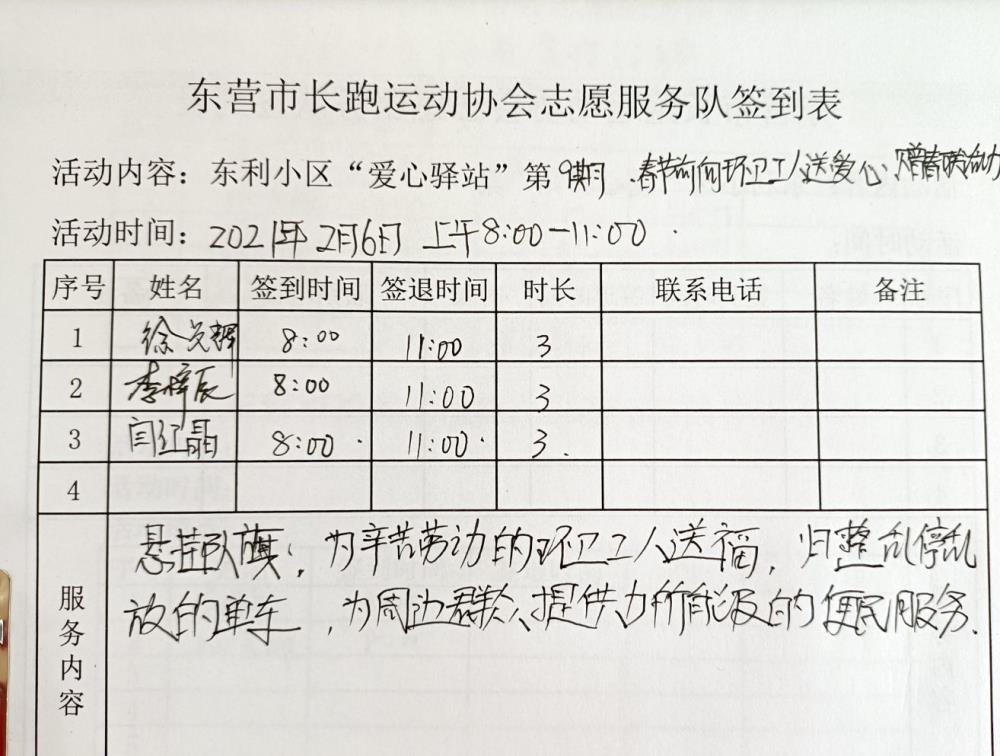 东营市长跑运动协会志愿服务队签到表
活动内容：东利小区“爱心驿站”第9期 春节前向环卫工人送爱心、赠春联活动
活动时间：2021年2月6日 上午8:00-11:00
序号 姓名 签到时间 签退时间 时长 联系电话 备注
1 徐 辉 8:00 11:00 3
2 李梓辰 8:00 11:00 3
3 闫红晶 8:00 11:00 3
4
服务内容
悬挂队旗，为辛苦劳动的环卫工人送福，归整乱停乱
放的单车，为周边群众提供力所能及的便民服务.